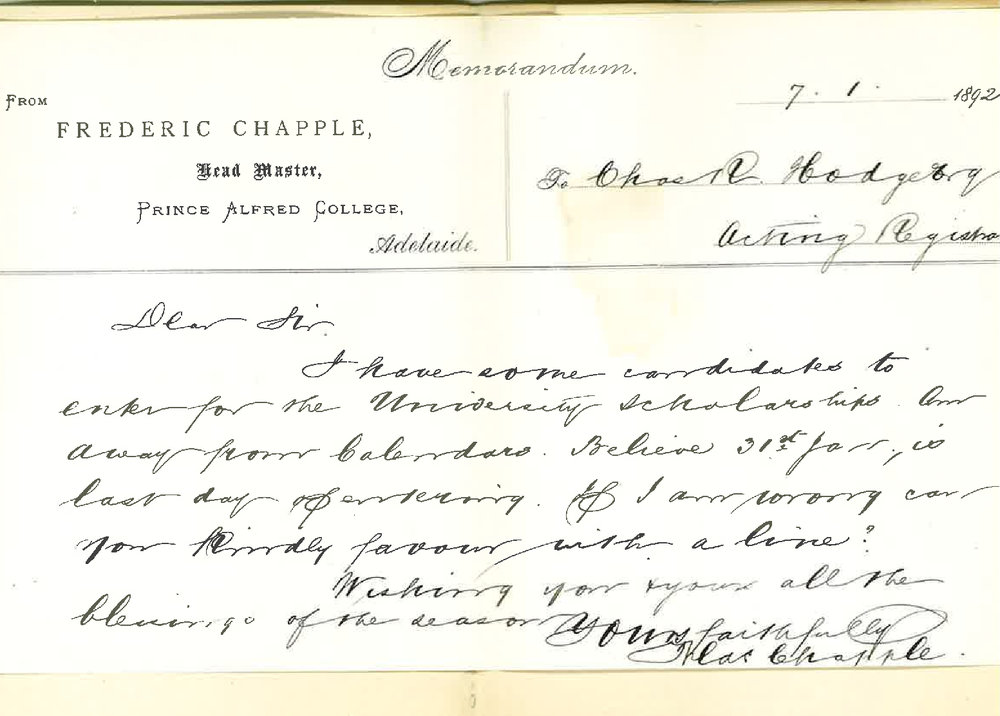 Memorandum.
7. 1. 1892
FROM
FREDERIC CHAPPLE,
Head Master,
PRINCE ALFRED COLLEGE,
Adelaide.
To Chas R. Hodge Esq
Acting Registra
Dear Sir.
I have some candidates to
enter for the University Scholarships. Am
away from Calendars. Believe 31st Jan., is
last day of entering. If I am wrong can
you kindly favour with a line?
Wishing you & yours all the
blessings of the season
Yours faithfully
Chapple.